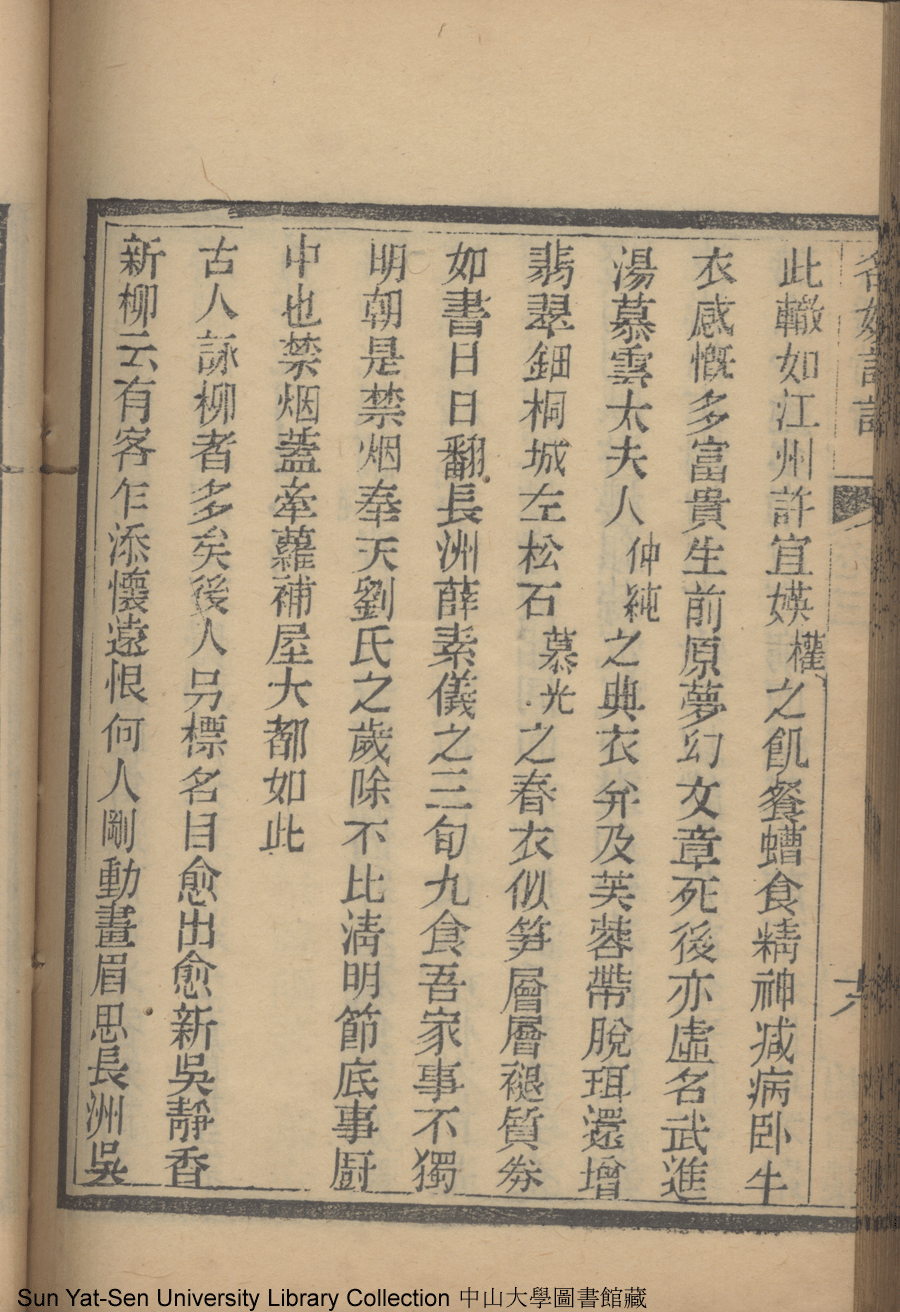 名媛詩話
六
此轍如江州許宜媖權之飢餐螬食精神减病卧牛
衣感慨多富貴生前原夢幻文章死後亦虛名武進
湯慕雲太夫人仲純之典衣弁及芙蓉帶脫珥還增
翡翠鈿桐城左松石慕光之春衣似笋層層褪質券
如書日日翻長洲薛素儀之三旬九食吾家事不獨
明朝是禁烟奉天劉氏之歲除不比淸明節底事厨
中也禁烟蓋牽蘿補屋大都如此
古人詠柳者多矣後人另標名目愈出愈新吳靜香
新柳云有客乍添懷遠恨何人剛動畫眉思長洲吳
Sun Yat-Sen University Library Collection 中山大學圖書館藏